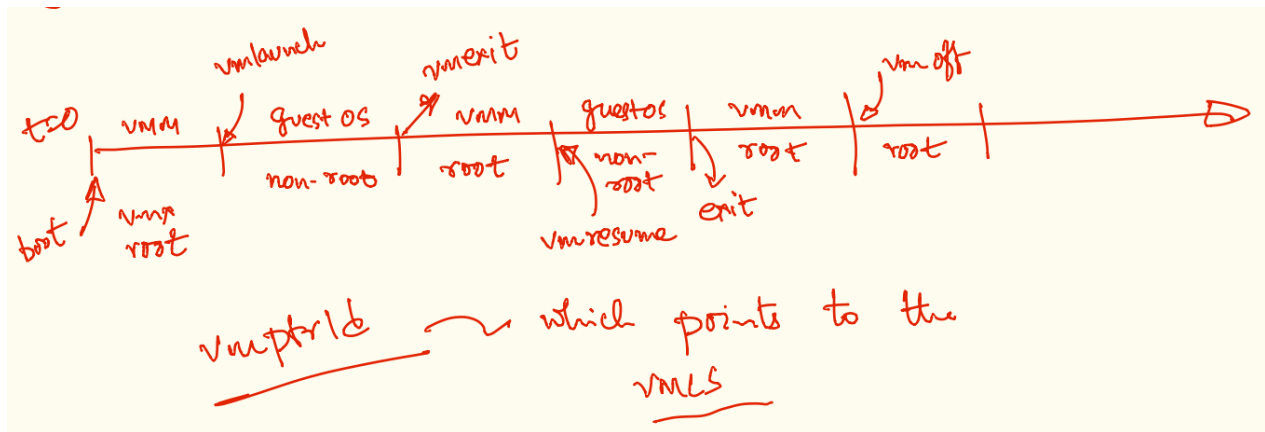 vmlaunch
vmexit
vm off
t=0
vmm
guest os
vmm
guest os
vmm
non-root
root
non-
root
root
root
boot
vmx
root
vmresume
exit
vmptrld which points to the
VMCS